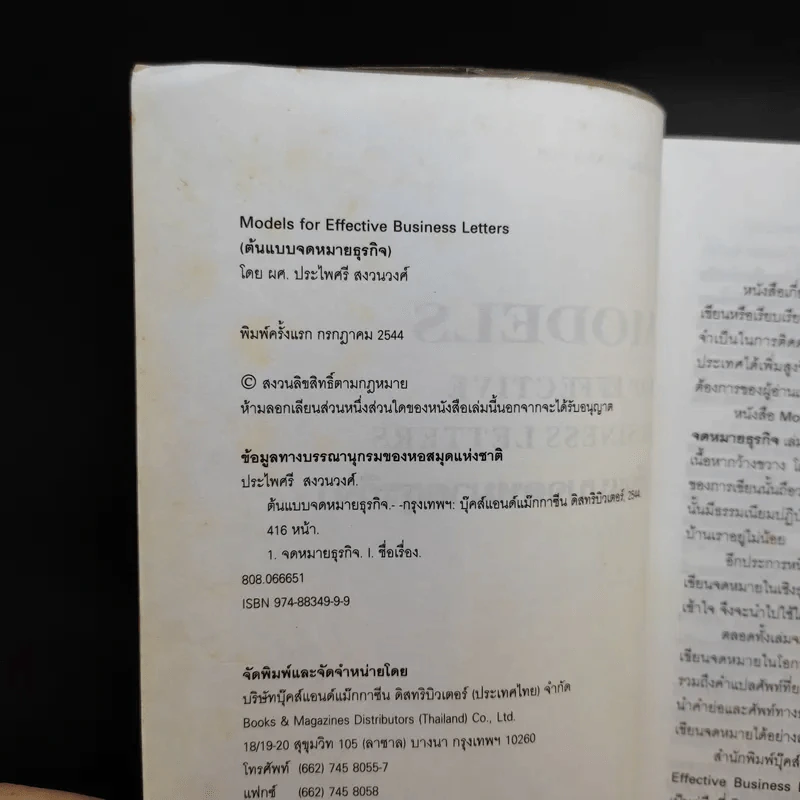 Models for Effective Business Letters
(ต้นแบบจดหมายธุรกิจ)
โดย ผศ. ประไพศรี สงวนวงศ์
พิมพ์ครั้งแรก กรกฎาคม 2544
© สงวนลิขสิทธิ์ตามกฎหมาย
ห้ามลอกเลียนส่วนหนึ่งส่วนใดของหนังสือเล่มนี้นอกจากจะได้รับอนุญาต
ข้อมูลทางบรรณานุกรมของหอสมุดแห่งชาติ
ประไพศรี สงวนวงศ์.
ต้นแบบจดหมายธุรกิจ.- -กรุงเทพฯ: บุ๊คส์แอนด์แม๊กกาซีน ดิสทริบิวเตอร์, 2544.
416 หน้า.
1. จดหมายธุรกิจ. I. ชื่อเรื่อง.
808.066651
ISBN 974-88349-9-9
จัดพิมพ์และจัดจำหน่ายโดย
บริษัทบุ๊คส์แอนด์แม๊กกาซีน ดิสทริบิวเตอร์ (ประเทศไทย) จำกัด
Books & Magazines Distributors (Thailand) Co., Ltd.
18/19-20 สุขุมวิท 105 (ลาซาล) บางนา กรุงเทพฯ 10260
โทรศัพท์ (662) 745 8055-7
แฟกซ์ (662) 745 8058
หนังสือเกี่
เขียนหรือเรียบเรีย
จำเป็นในการติดต
ประเทศได้เพิ่มสูง
ต้องการของผู้อ่าน
หนังสือ Mo
จดหมายธุรกิจ เล่ม
เนื้อหากว้างขวาง โ
ของการเขียนนั้นถือว
นั้นมีธรรมเนียมปฏิบั
บ้านเราอยู่ไม่น้อย
อีกประการหนึ
เขียนจดหมายในเชิงธุ
เข้าใจ จึงจะนำไปใช้ไ
ตลอดทั้งเล่มจ
เขียนจดหมายในโอก
รวมถึงคำแปลศัพท์ที่ย
นำคำย่อและศัพท์ทาง
เขียนจดหมายได้อย่าง
สำนักพิมพ์บุ๊คส์
Effective Business